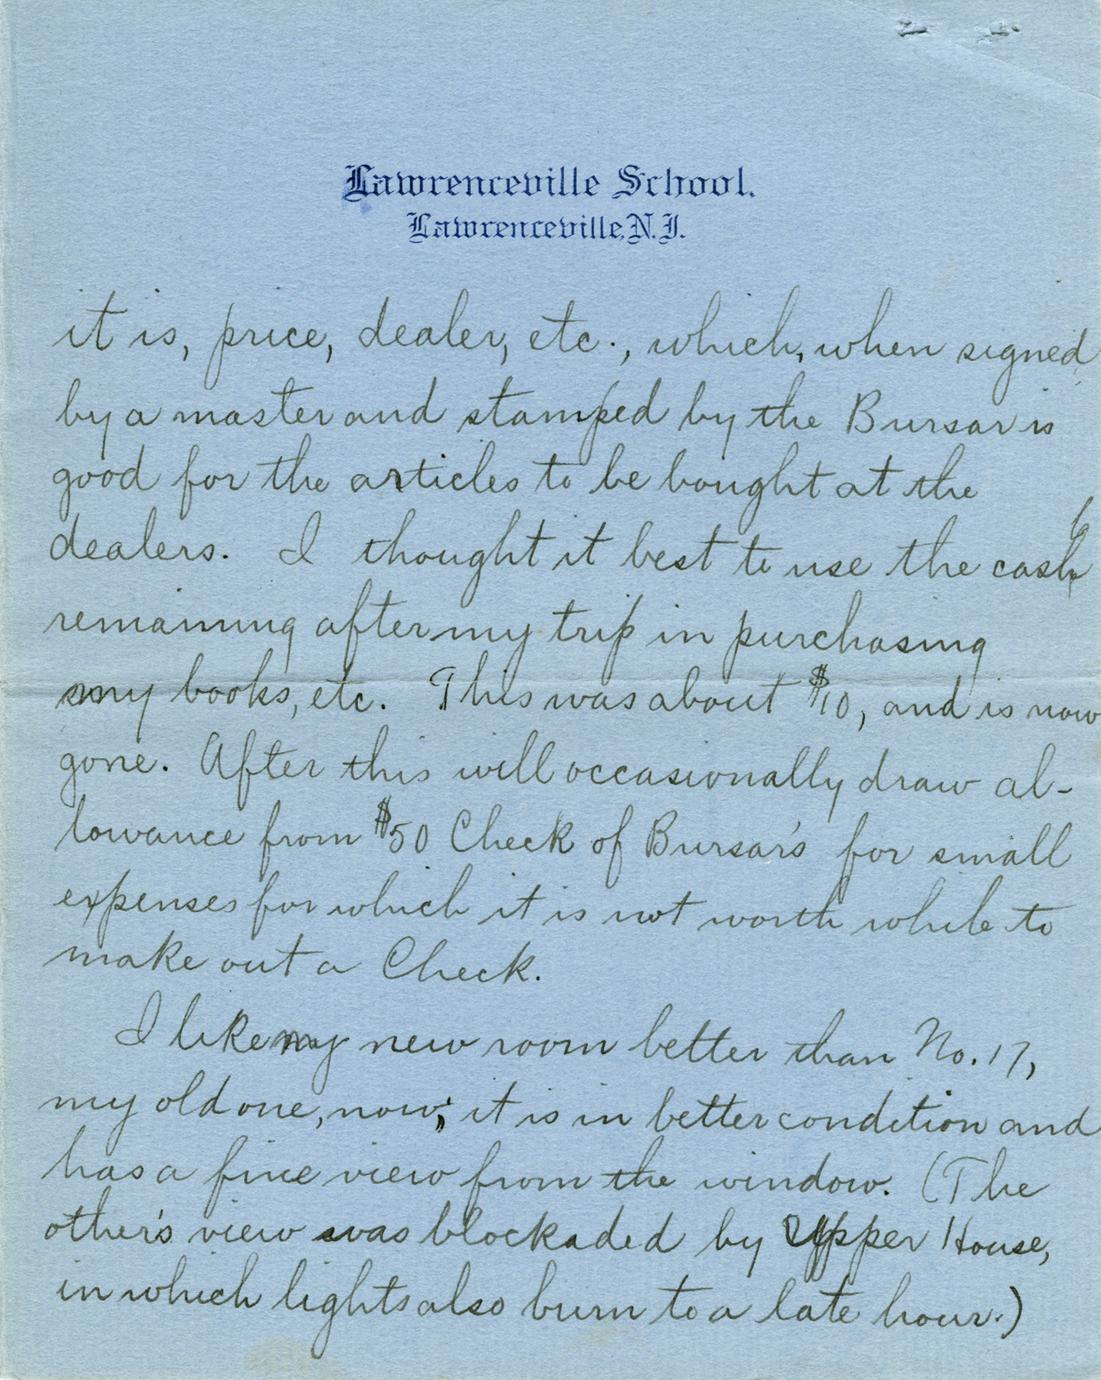 Lawrenceville School.
Lawrenceville, N.J.
it is, price, dealer, etc., which, when signed
by a master and stamped by the Bursar is
good for the articles to be bought at the
dealers. I thought it best to use the cash
remaining after my trip in purchasing
my books, etc. This was about $10, and is now
gone. After this will occasionally draw al-
lowance from $50 Check of Bursar's for small
expenses for which it is not worth while to
make out a Check.
I like my new room better than No. 17,
my old one, now; it is in better condition and
has a fine view from the window. (The
other's view was blockaded by Upper House,
in which lights also burn to a late hour.)